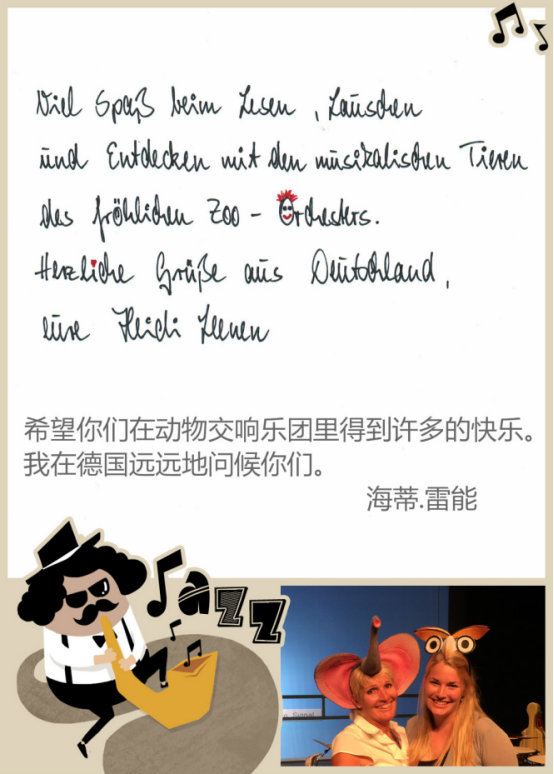 Viel Spaß beim Lesen, Lauschen
und Entdecken mit den musikalischen Tieren
des fröhlichen Zoo-Orchesters.
Herzliche Grüße aus Deutschland,
eure Heidi Leenen
希望你们在动物交响乐团里得到许多的快乐。
我在德国远远地问候你们。
海蒂.雷能
Jazz